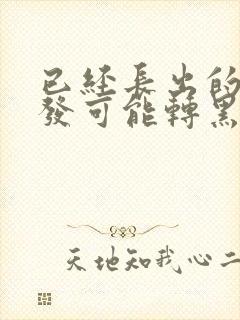 已經長出的
發可能轉黑
天地知我心二